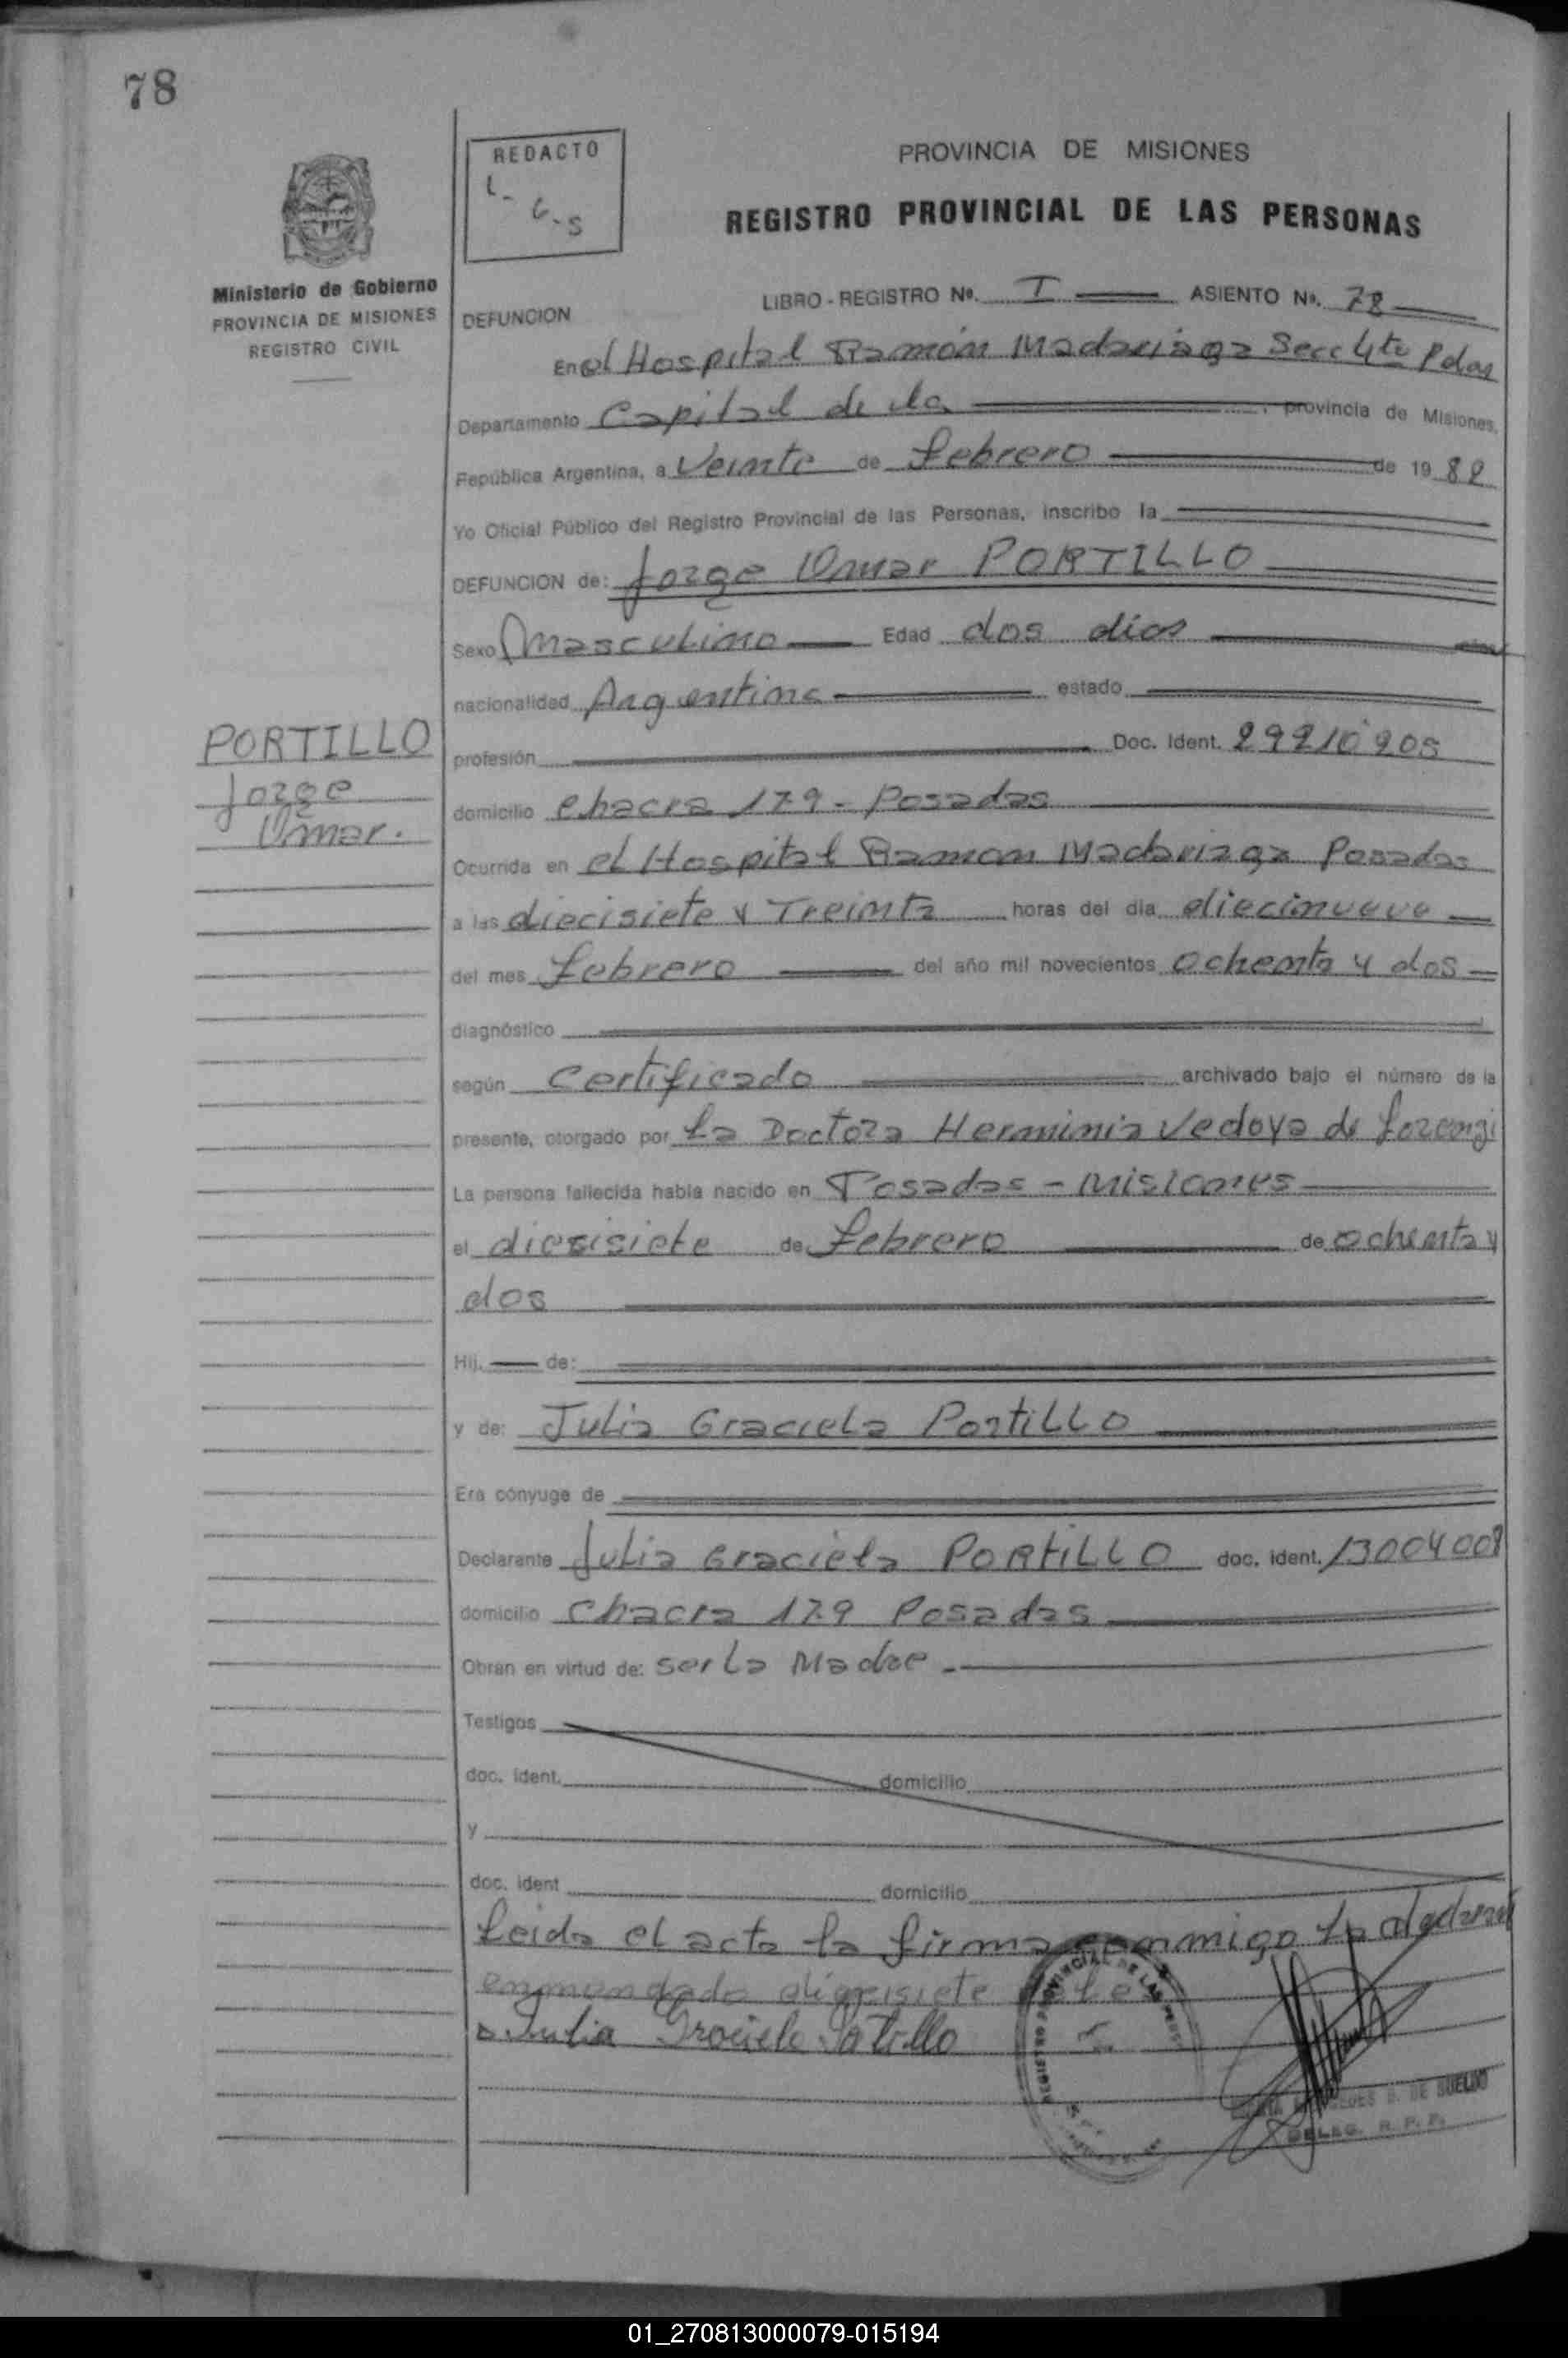 78
REDACTO
L-G-S
PROVINCIA DE MISIONES
REGISTRO PROVINCIAL DE LAS PERSONAS
Ministerio de Gobierno
PROVINCIA DE MISIONES
REGISTRO CIVIL
LIBRO - REGISTRO Nº. I ASIENTO Nº. 78
DEFUNCION
En el Hospital Ramón Madariaga Secc 4ta Pdas
Departamento Capital de la provincia de Misiones,
República Argentina, a Veinte de febrero de 1982
Yo Oficial Público del Registro Provincial de las Personas, inscribo la
DEFUNCION de: Jorge Omar PORTILLO
Sexo Masculino Edad dos días
nacionalidad Argentina estado
PORTILLO
Jorge
Omar.
profesión Doc. Ident. 29210205
domicilio Chacra 179 - Posadas
Ocurrida en el Hospital Ramon Madariaga Posadas
a las diecisiete y Treinta horas del día diecinueve
del mes febrero del año mil novecientos ochenta y dos
diagnóstico
según Certificado archivado bajo el número de la
presente, otorgado por La Doctora Herminia Vedoya de
La persona fallecida había nacido en Posadas - Misiones
el diecisiete de febrero de ochenta y
dos
Hij. de:
y de: Julia Graciela Portillo
Era cónyuge de
Declarante Julia Graciela PORTILLO doc. ident. 13004008
domicilio Chacra 179 Posadas
Obran en virtud de: ser la Madre.-
Testigos
doc. ident. domicilio
y
doc. ident domicilio
Leida el acta la firma conmigo la
enmendado diecisiete
Julia Graciela Portillo
REGISTRO PROVINCIAL DE LAS PERS
DE SUELDO
DELEG. R. P. P.
01_270813000079-015194